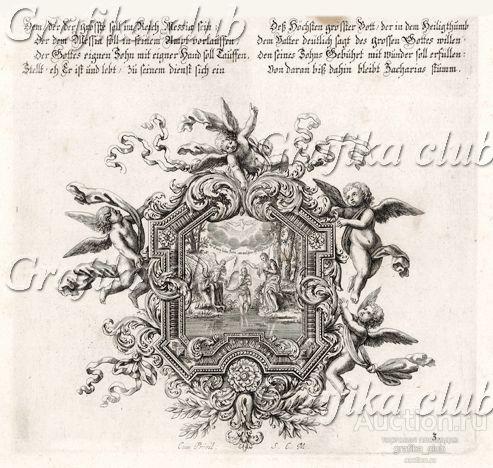 Dem, der der grösste soll im Reich Messiæ sein,
Der dem Messia soll in seinem Ampt vorlauffen,
Der Gottes eignen Sohn mit eigner Hand soll Tauffen,
Stellt eh Er ist und lebt, zu seinem dienst sich ein
Deß Höchsten grosster Bott, der in dem Heiligthumb
Dem Vatter deutlich sagt des grossen Gottes willen,
den seines Sohns Gebührt mit wunder soll erfüllen:
Von daran biß dahin bleibt Zacharias stumm.
Grafika club
Grafika club
Grafika club
Grafika club
fika club
Cum Privil. S. C. M.
3
Аукцион.ru
grafika_club